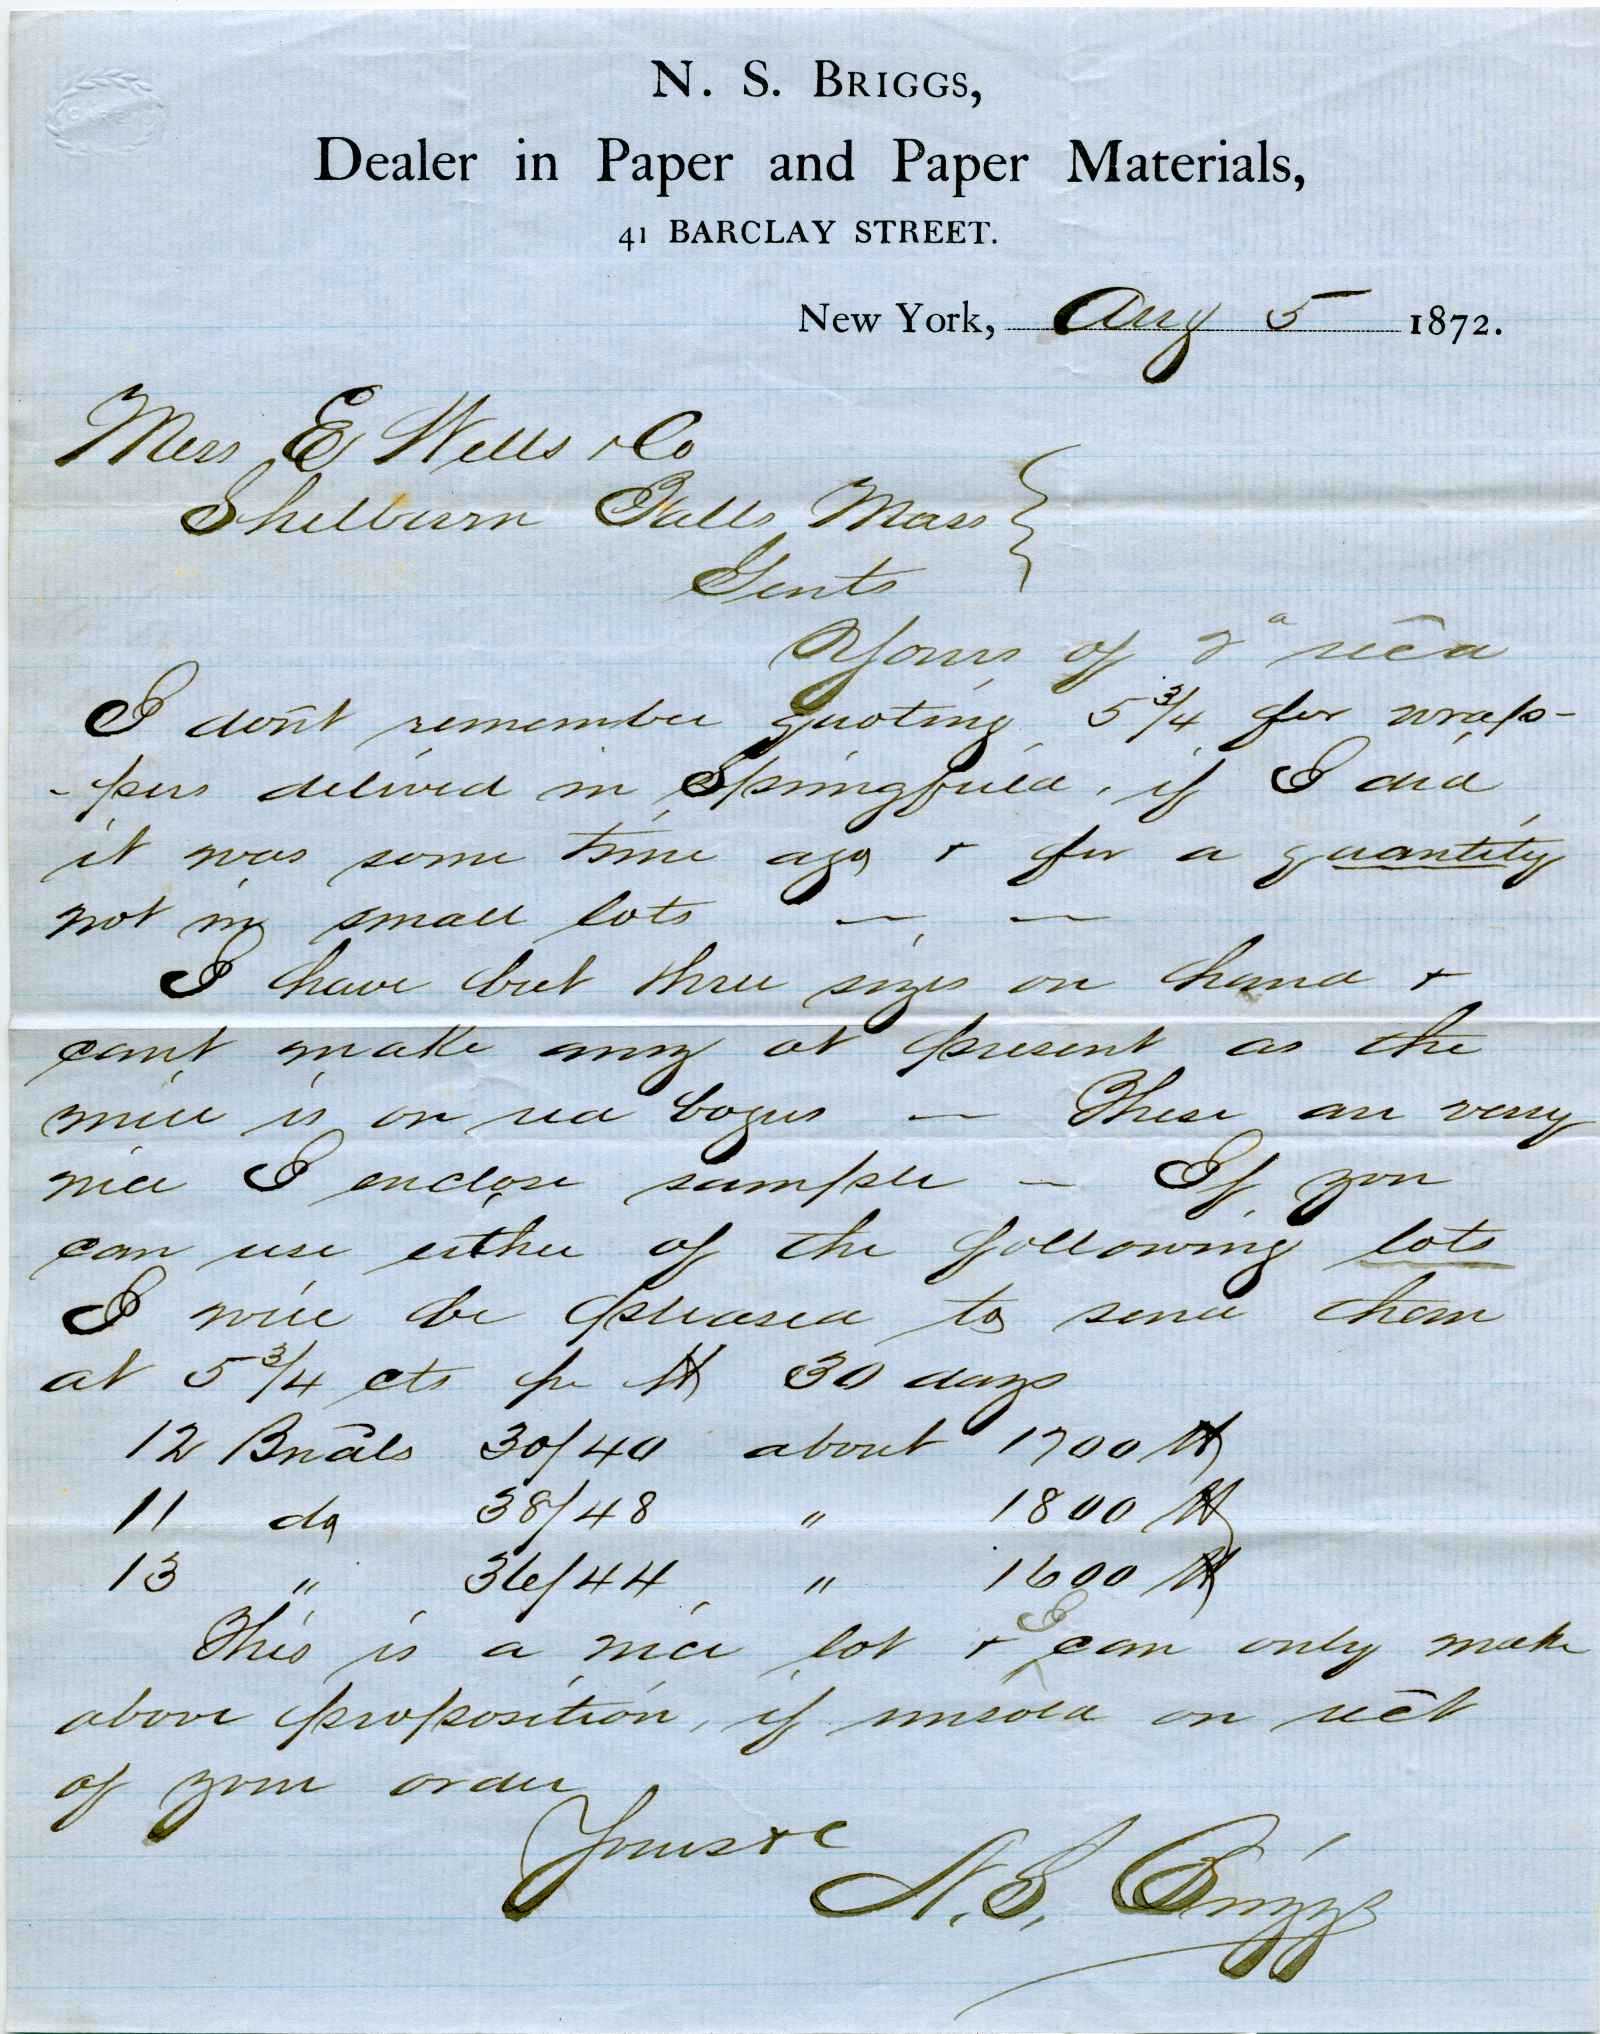 N. S. BRIGGS,
Dealer in Paper and Paper Materials,
41 BARCLAY STREET.
New York, Aug 5 1872.
Mess E Wells & Co
Shelburn Falls Mass
Gents
Yours of 2d recd
I dont remember quoting 5 3/4 for wrap-
-pers delived in Springfield, if I did
it was some time ago & for a quantity
not in small lots — —
I have but three sizes on hand &
cant make any at present as the
mill is on red bogus — These are very
nice I enclose sample — If you
can use either of the following lots
I will be pleased to send them
at 5 3/4 cts pr lb 30 days
12 Bndls 30/40 about 1700 lb
11 do 38/48 " 1800 lb
13 " 36/44 " 1600 lb
This is a nice lot & I can only make
above proposition, if unsold on rect
of your order
Yours &c
N. S. Briggs